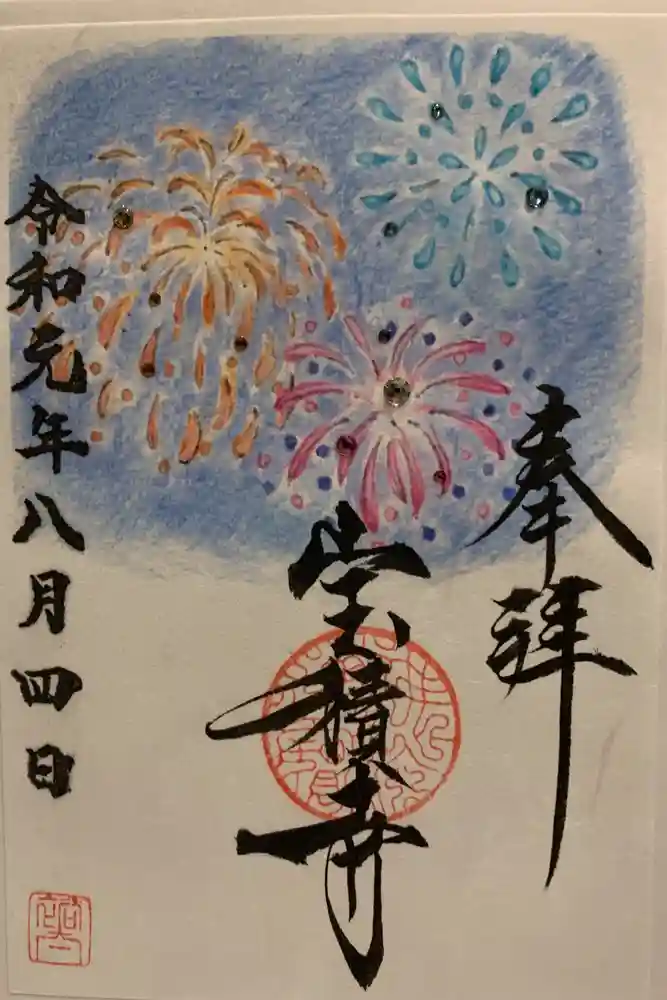 奉拝
宝積寺
令和元年八月四日